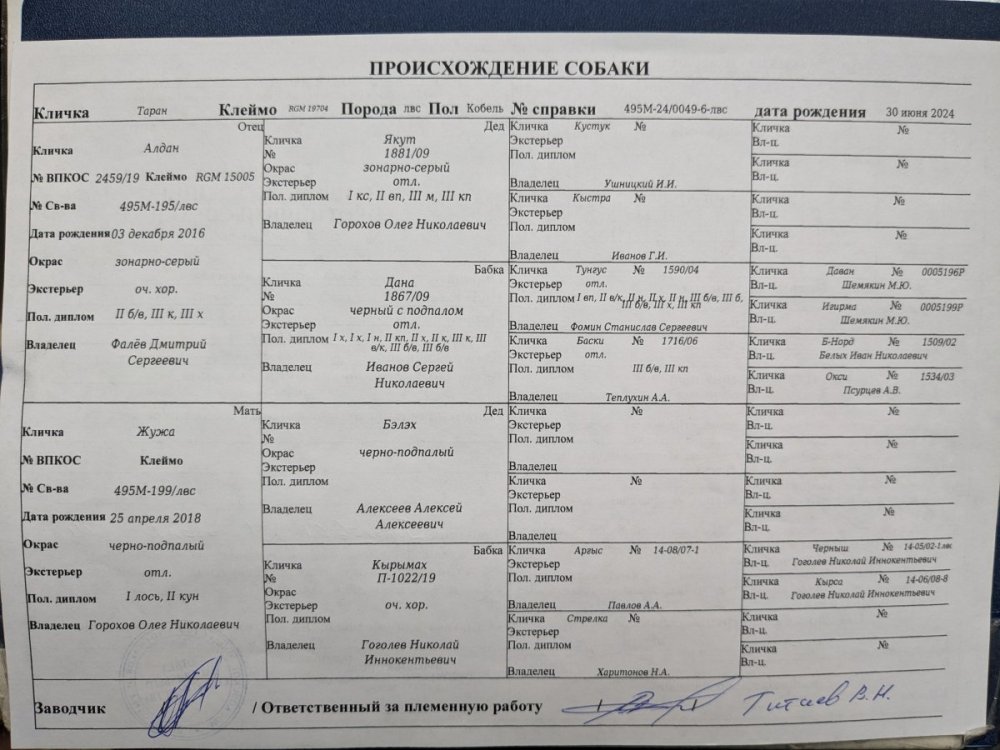 ПРОИСХОЖДЕНИЕ СОБАКИ
Кличка Таран Клеймо RGM 19704 Порода лвс Пол Кобель № справки 495М-24/0049-6-лвс дата рождения 30 июня 2024
Отец
Кличка Алдан
№ ВПКОС 2459/19 Клеймо RGM 15005
№ Св-ва 495М-195/лвс
Дата рождения 03 декабря 2016
Окрас зонарно-серый
Экстерьер оч. хор.
Пол. диплом II б/в, III к, III х
Владелец Фалёв Дмитрий
Сергеевич
Мать
Кличка Жужа
№ ВПКОС Клеймо
№ Св-ва 495М-199/лвс
Дата рождения 25 апреля 2018
Окрас черно-подпалый
Экстерьер отл.
Пол. диплом I лось, II кун
Владелец Горохов Олег Николаевич
Дед
Кличка Якут
№ 1881/09
Окрас зонарно-серый
Экстерьер отл.
Пол. диплом I кс, II вп, III м, III кп
Владелец Горохов Олег Николаевич
Бабка
Кличка Дана
№ 1867/09
Окрас черный с подпалом
Экстерьер отл.
Пол. диплом I х, I х, I н, II кп, II х, II к, III к, III
в/к, III б/в, III б/в
Владелец Иванов Сергей
Николаевич
Дед
Кличка Бэлэх
№
Окрас черно-подпалый
Экстерьер
Пол. диплом
Владелец Алексеев Алексей
Алексеевич
Бабка
Кличка Кырымах
№ П-1022/19
Окрас
Экстерьер оч. хор.
Пол. диплом
Владелец Гоголев Николай
Иннокентьевич
Кличка Кустук №
Экстерьер
Пол. диплом
Владелец Ушницкий И.И.
Кличка Кыстра №
Экстерьер
Пол. диплом
Владелец Иванов Г.И.
Кличка Тунгус № 1590/04
Экстерьер отл.
Пол. диплом I вп, II в/к, II н, II х, II н, III б/в, III б,
III б/в, III х, III кп
Владелец Фомин Станислав Сергеевич
Кличка Баски № 1716/06
Экстерьер отл.
Пол. диплом III б/в, III кп
Владелец Теплухин А.А.
Кличка №
Экстерьер
Пол. диплом
Владелец
Кличка №
Экстерьер
Пол. диплом
Владелец
Кличка Аргыс № 14-08/07-1
Экстерьер
Пол. диплом
Владелец Павлов А.А.
Кличка Стрелка №
Экстерьер
Пол. диплом
Владелец Харитонов Н.А.
Кличка №
Вл-ц.
Кличка №
Вл-ц.
Кличка №
Вл-ц.
Кличка №
Вл-ц.
Кличка Даван № 0005196Р
Вл-ц. Шемякин М.Ю.
Кличка Игирма № 0005199Р
Вл-ц. Шемякин М.Ю.
Кличка Б-Норд № 1509/02
Вл-ц. Белых Иван Николаевич
Кличка Окси № 1534/03
Вл-ц. Псурцев А.В.
Кличка №
Вл-ц.
Кличка №
Вл-ц.
Кличка №
Вл-ц.
Кличка №
Вл-ц.
Кличка Черныш № 14-05/02-1лвс
Вл-ц. Гоголев Николай Иннокентьевич
Кличка Кырса № 14-06/08-8
Вл-ц. Гоголев Николай Иннокентьевич
Кличка №
Вл-ц.
Кличка №
Вл-ц.
Заводчик / Ответственный за племенную работу Титаев В.Н.